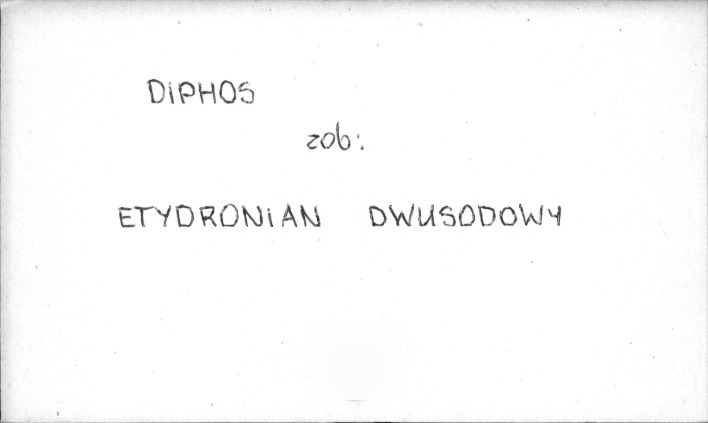 DiPHOS
zob:
ETYDRONiAN DWUSODOWY